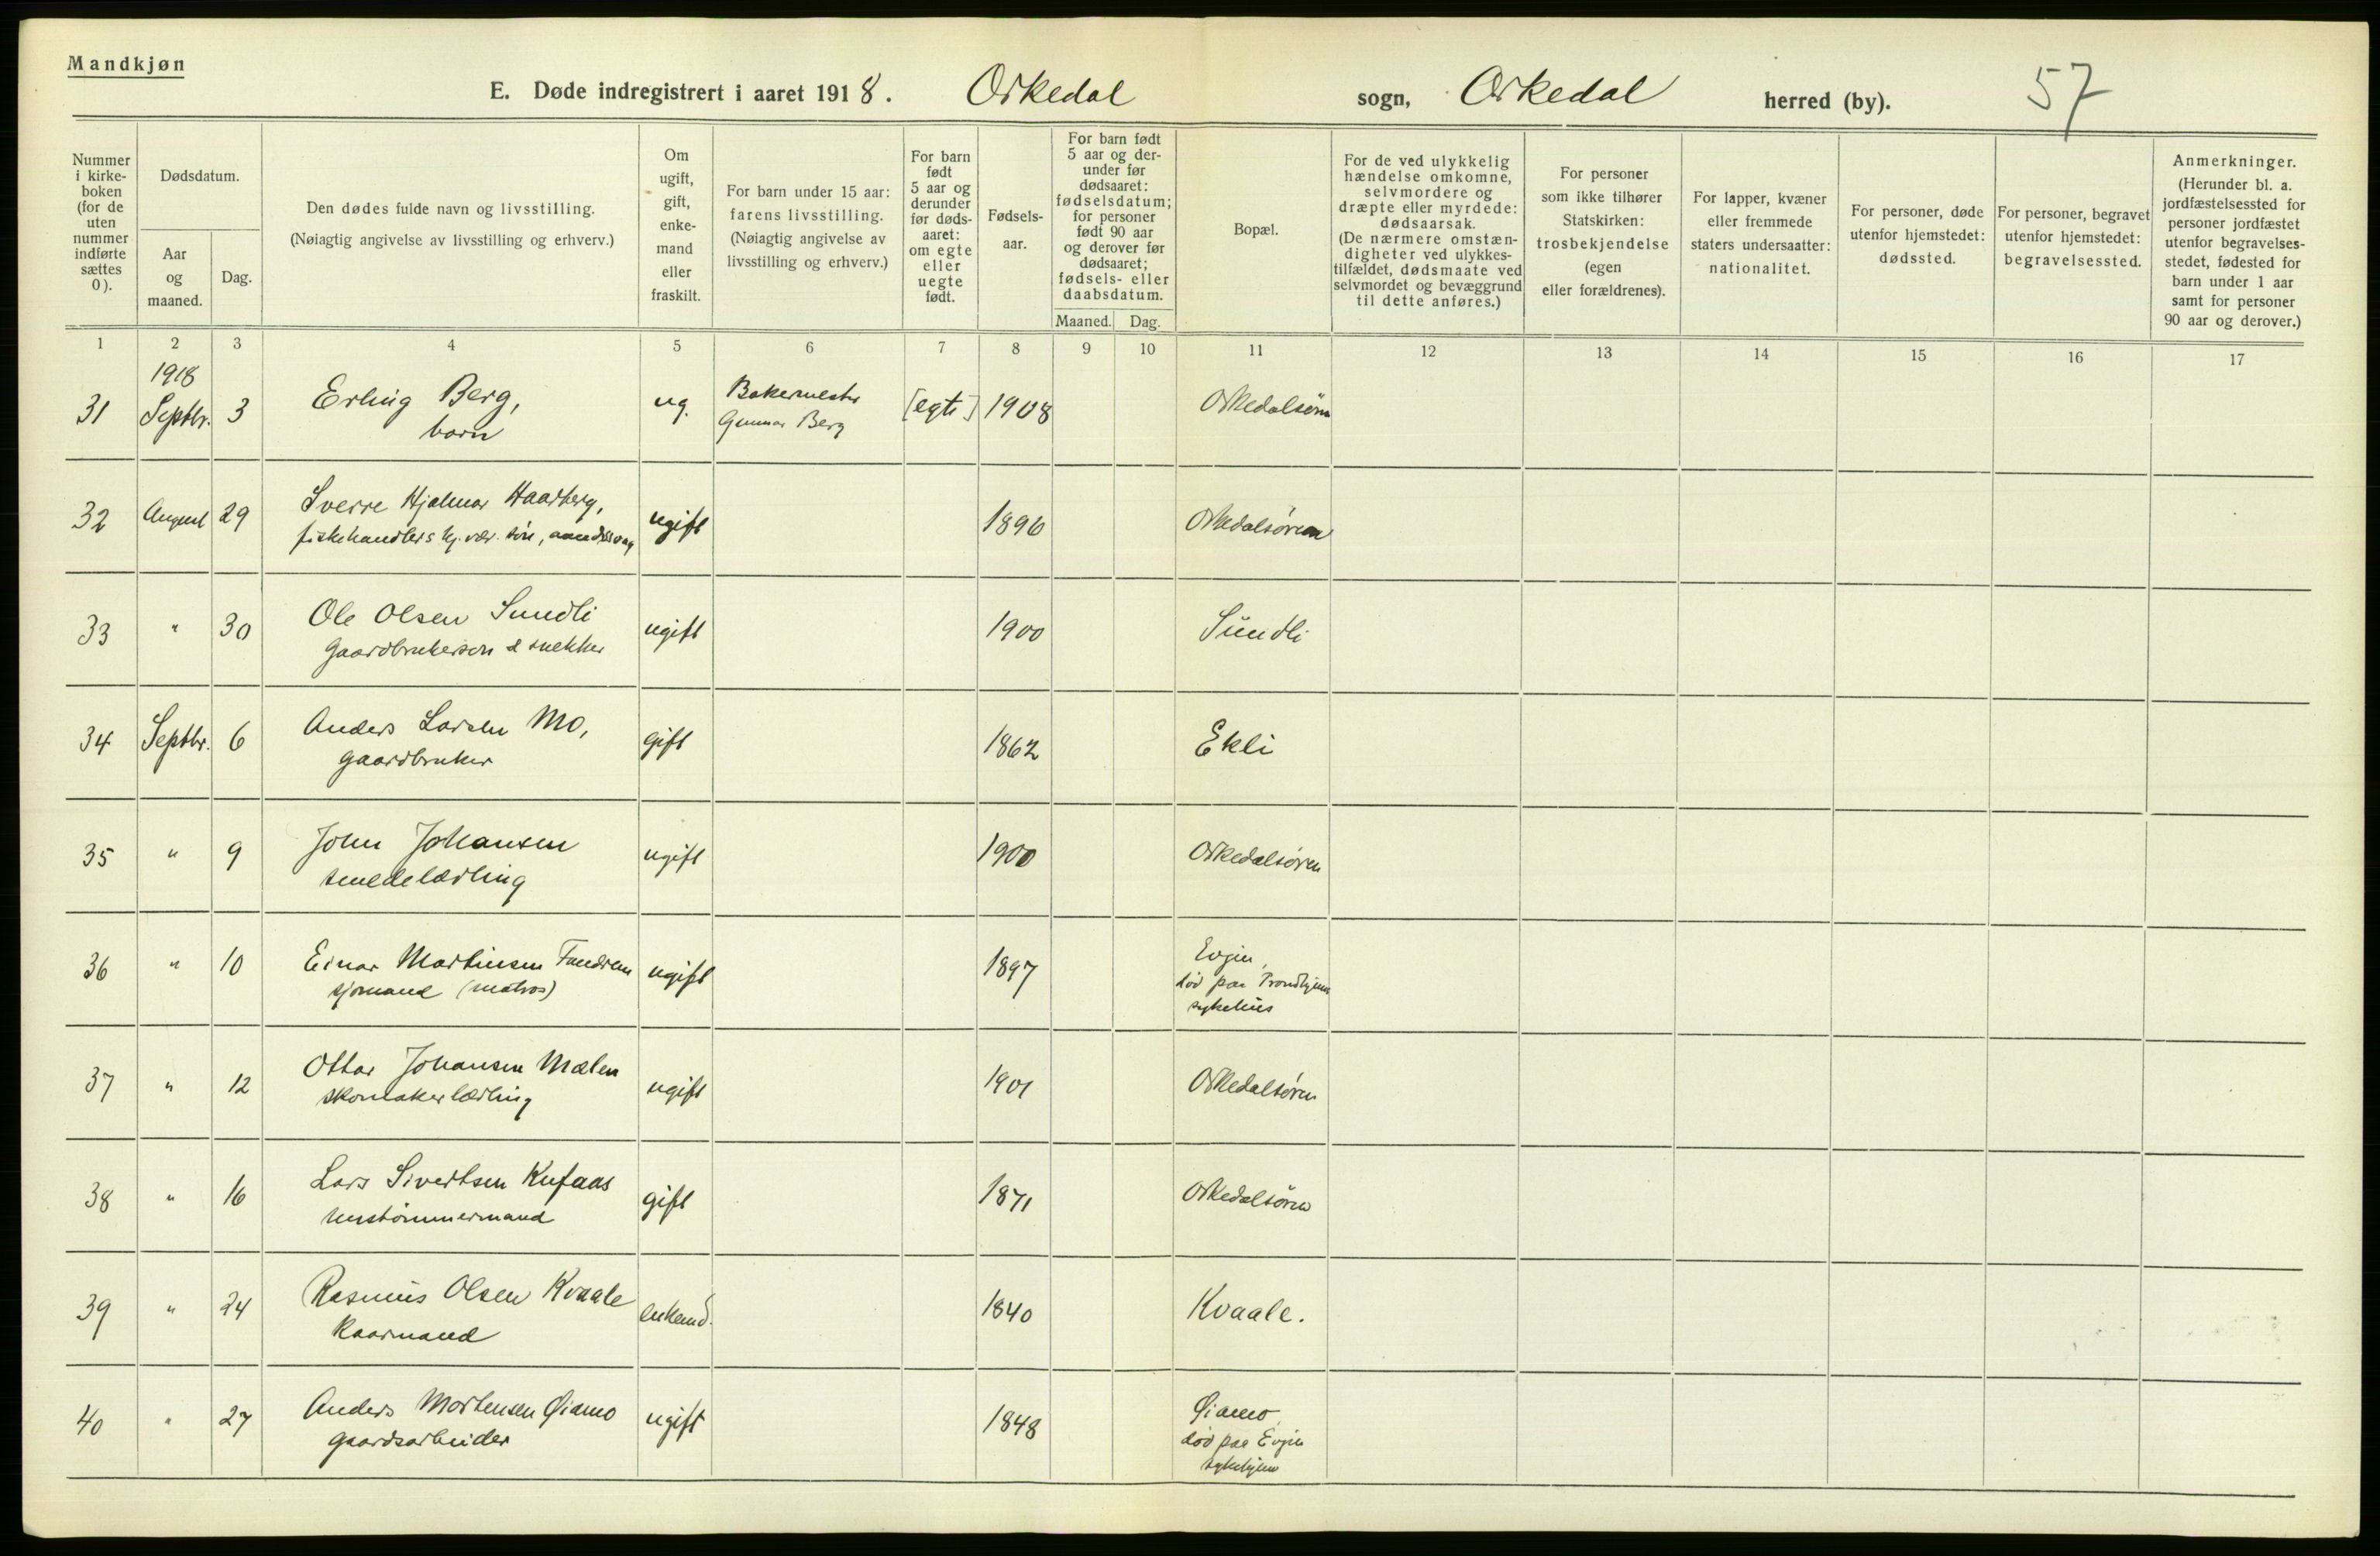 Mandkjøn
E. Døde indregistrert i aaret 1918. Orkedal sogn, Orkedal herred (by). 57
Nummer i kirke- boken (for de uten nummer indførte sættes 0).
Dødsdatum.
Aar og maaned.
Dag.
Den dødes fulde navn og livsstilling.
(Nøiagtig angivelse av livsstilling og erhverv.)
Om ugift, gift, enke- mand eller fraskilt.
For barn under 15 aar: farens livsstilling. (Nøiagtig angivelse av livsstilling og erhverv.)
For barn født 5 aar og derunder før døds- aaret: om egte eller uegte født.
Fødsels- aar.
For barn født 5 aar og der- under før dødsaaret: fødselsdatum; for personer født 90 aar og derover før dødsaaret; fødsels- eller daabsdatum.
Maaned. Dag.
Bopæl.
For de ved ulykkelig hændelse omkomne, selvmordere og dræpte eller myrdede: dødsaarsak. (De nærmere omstæn- digheter ved ulykkes- tilfældet, dødsmaate ved selvmordet og bevæggrund til dette anføres.)
For personer som ikke tilhører Statskirken: trosbekjendelse (egen eller forældrenes).
For lapper, kvæner eller fremmede staters undersaatter: nationalitet.
For personer, døde utenfor hjemstedet: dødssted.
For personer, begravet utenfor hjemstedet: begravelsessted.
Anmerkninger. (Herunder bl. a. jordfæstelsessted for personer jordfæstet utenfor begravelses- stedet, fødested for barn under 1 aar samt for personer 90 aar og derover.)
1 2 3 4 5 6 7 8 9 10 11 12 13 14 15 16 17
1918
31 Septbr. 3 Erling Berg, ug. Bakermester [egte] 1908 Orkedalsøren
barn Gunnar Berg
32 August 29 Sverre Hjalmar Haarberg, ugift 1896 Orkedalsøren
fiskehandlers hj. vær. søn, aandssvag
33 " 30 Ole Olsen Sundli ugift 1900 Sundli
Gaardbrukersøn & snekker
34 Septbr. 6 Anders Larsen Mo, gift 1862 Ekli
gaardbruker
35 " 9 John Johansen ugift 1900 Orkedalsøren
smedelærling
36 " 10 Einar Martinsen Fandrem ugift 1897 Evjen,
sjømand (matros) død paa Trondhjems
sykehus
37 " 12 Ottar Johansen Mælen ugift 1901 Orkedalsøren
skomakerlærling
38 " 16 Lars Sivertsen Kufaas gift 1871 Orkedalsøren
hustømmermand
39 " 24 Rasmus Olsen Kvaale enkemd. 1840 Kvaale.
Kaarmand
40 " 27 Anders Mortensen Øiamo ugift 1848 Øiamo,
gaardsarbeider død paa Evjen
sykehjem